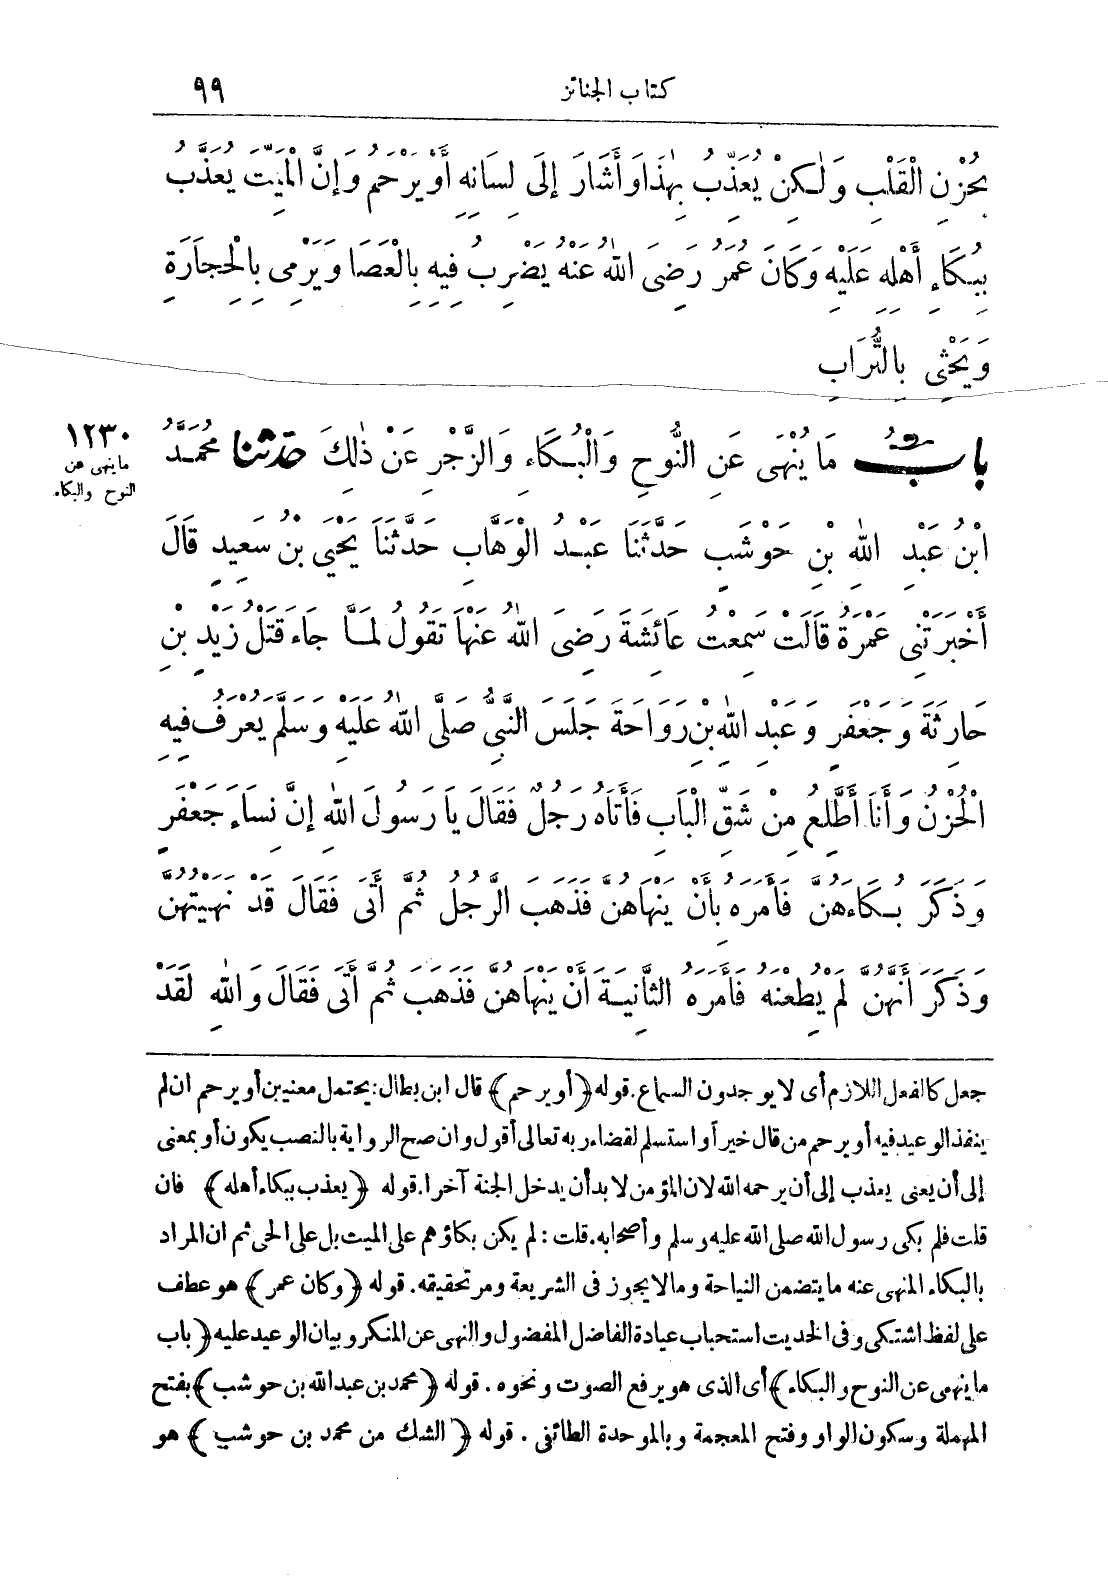 كتاب الجنائز ٩٩
بِحُزْنِ الْقَلْبِ وَلٰكِنْ يُعَذِّبُ بِهٰذَا وَأَشَارَ إِلَى لِسَانِهِ أَوْ يَرْحَمُ وَإِنَّ الْمَيِّتَ يُعَذَّبُ
بِبُكَاءِ أَهْلِهِ عَلَيْهِ وَكَانَ عُمَرُ رَضِىَ اللهُ عَنْهُ يَضْرِبُ فِيهِ بِالْعَصَا وَيَرْمِى بِالْحِجَارَةِ
وَيَحْثِى بِالتُّرَابِ
بابُ مَا يُنْهَى عَنِ النُّوحِ وَالْبُكَاءِ وَالزَّجْرِ عَنْ ذٰلِكَ حَدَّثَنَا مُحَمَّدُ
١٢٣٠
ما ينهى عن
النوح والبكاء
ابْنُ عَبْدِ اللهِ بْنِ حَوْشَبٍ حَدَّثَنَا عَبْدُ الْوَهَّابِ حَدَّثَنَا يَحْيَى بْنُ سَعِيدٍ قَالَ
أَخْبَرَتْنِى عَمْرَةُ قَالَتْ سَمِعْتُ عَائِشَةَ رَضِىَ اللهُ عَنْهَا تَقُولُ لَمَّا جَاءَ قَتْلُ زَيْدِ بْنِ
حَارِثَةَ وَجَعْفَرٍ وَعَبْدِ اللهِ بْنِ رَوَاحَةَ جَلَسَ النَّبِىُّ صَلَّى اللهُ عَلَيْهِ وَسَلَّمَ يُعْرَفُ فِيهِ
الْحُزْنُ وَأَنَا أَطَّلِعُ مِنْ شَقِّ الْبَابِ فَأَتَاهُ رَجُلٌ فَقَالَ يَا رَسُولَ اللهِ إِنَّ نِسَاءَ جَعْفَرٍ
وَذَكَرَ بُكَاءَهُنَّ فَأَمَرَهُ بِأَنْ يَنْهَاهُنَّ فَذَهَبَ الرَّجُلُ ثُمَّ أَتَى فَقَالَ قَدْ نَهَيْتُهُنَّ
وَذَكَرَ أَنَّهُنَّ لَمْ يُطِعْنَهُ فَأَمَرَهُ الثَّانِيَةَ أَنْ يَنْهَاهُنَّ فَذَهَبَ ثُمَّ أَتَى فَقَالَ وَاللهِ لَقَدْ
جعل كالفعل اللازم أى لا يوجدون السماع. قوله ﴿أو يرحم﴾ قال ابن بطال: يحتمل معنيين أو يرحم ان لم
ينفذ الوعيد فيه أو يرحم من قال خيرا أو استسلم لقضاء ربه تعالى أقول وان صح الرواية بالنصب يكون أو بمعنى
إلى أن يعنى يعذب إلى أن يرحمه الله لان المؤمن لابد أن يدخل الجنة آخرا. قوله ﴿يعذب ببكاء أهله﴾ فان
قلت فلم بكى رسول الله صلى الله عليه وسلم وأصحابه. قلت: لم يكن بكاؤهم على الميت بل على الحى ثم ان المراد
بالبكاء المنهى عنه ما يتضمن النياحة ومالا يجوز فى الشريعة ومر تحقيقه. قوله ﴿وكان عمر﴾ هو عطف
على لفظ اشتكى وفى الحديث استحباب عيادة الفاضل المفضول والنهى عن المنكر وبيان الوعيد عليه ﴿باب
ما ينهى عن النوح والبكاء﴾ أى الذى هو يرفع الصوت ونحوه. قوله ﴿محمد بن عبد الله بن حوشب﴾ بفتح
المهملة وسكون الواو وفتح المعجمة وبالموحدة الطائفى. قوله ﴿الشك من محمد بن حوشب﴾ هو